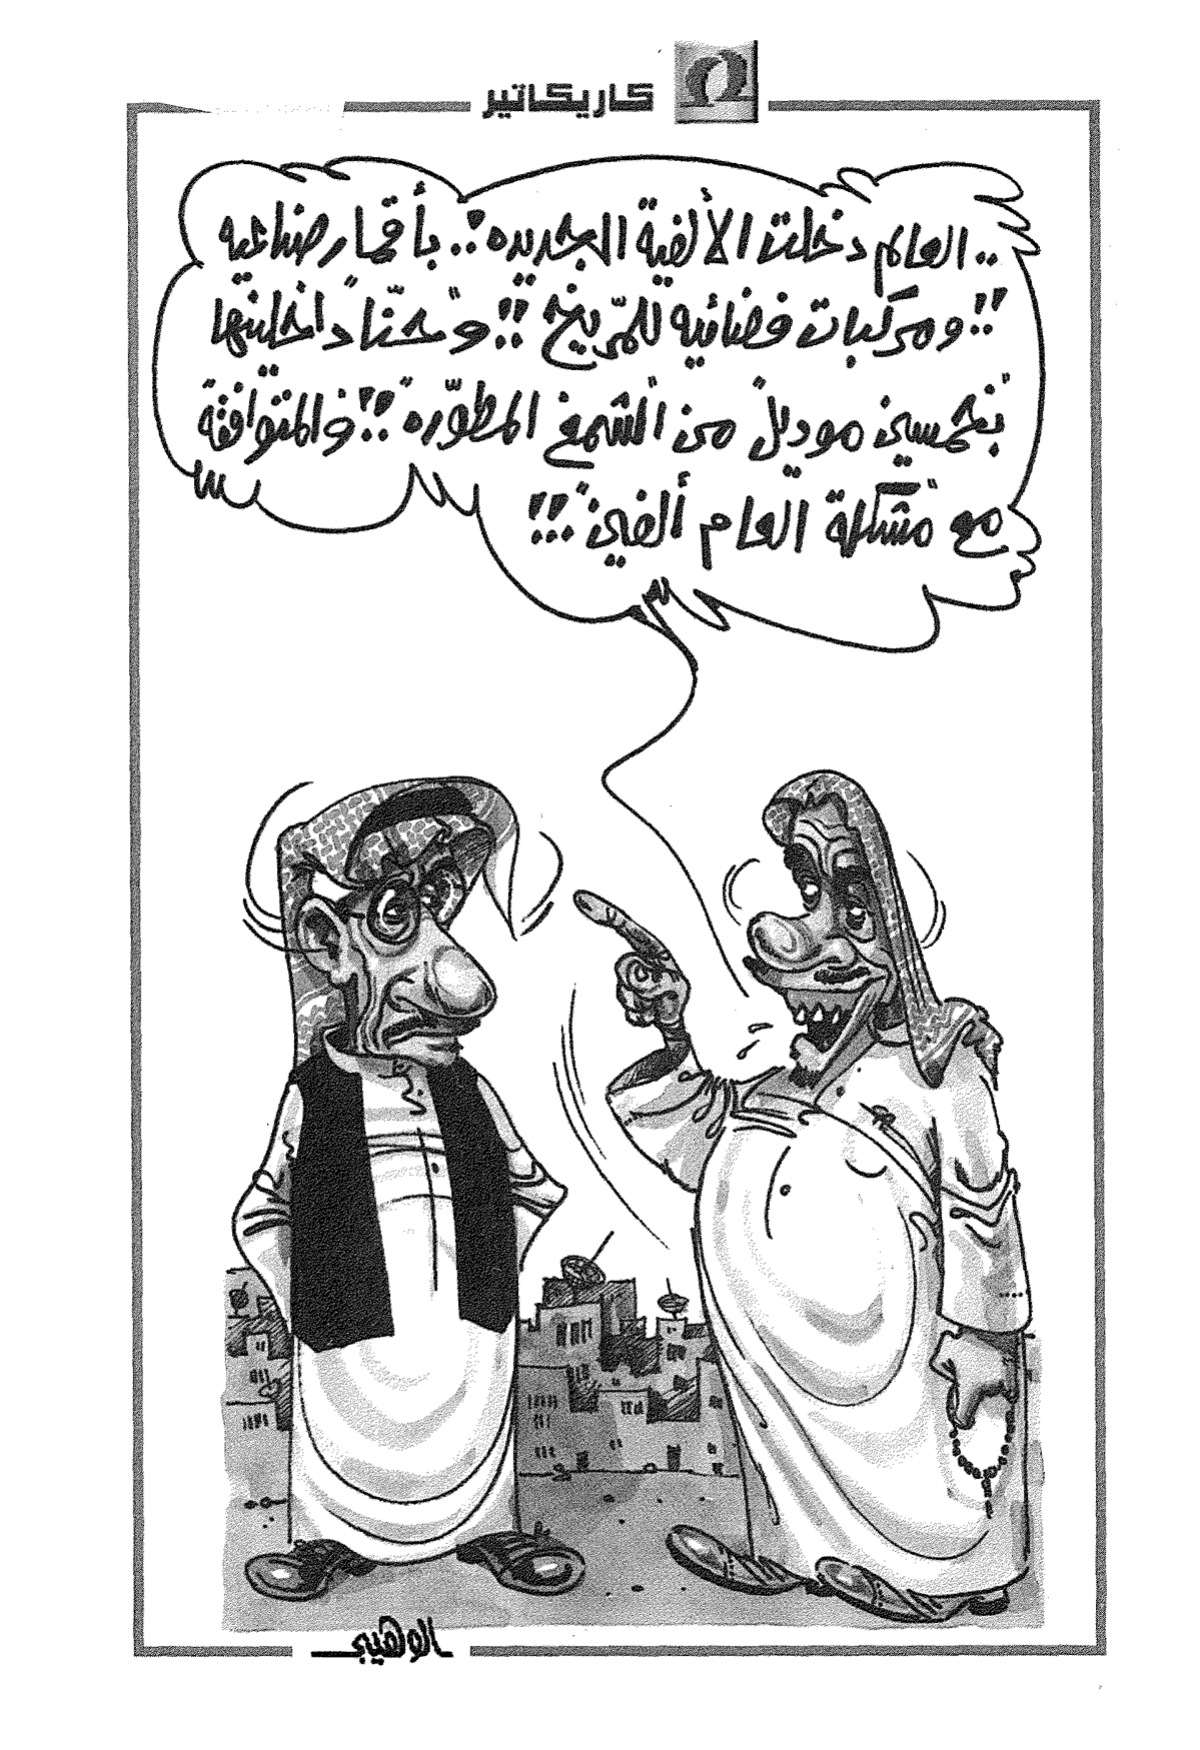 كاريكاتير
.. العالم دخلت الألفية الجديده.. بأقمار صناعيه
ومركبات فضائيه للمرّيخ!! وْحنّا داخلينها
بْخمسين موديل من الشمغ المطوّره!! والمتوافقة
مع مشكلة العام ألفين!!
الوهيبي